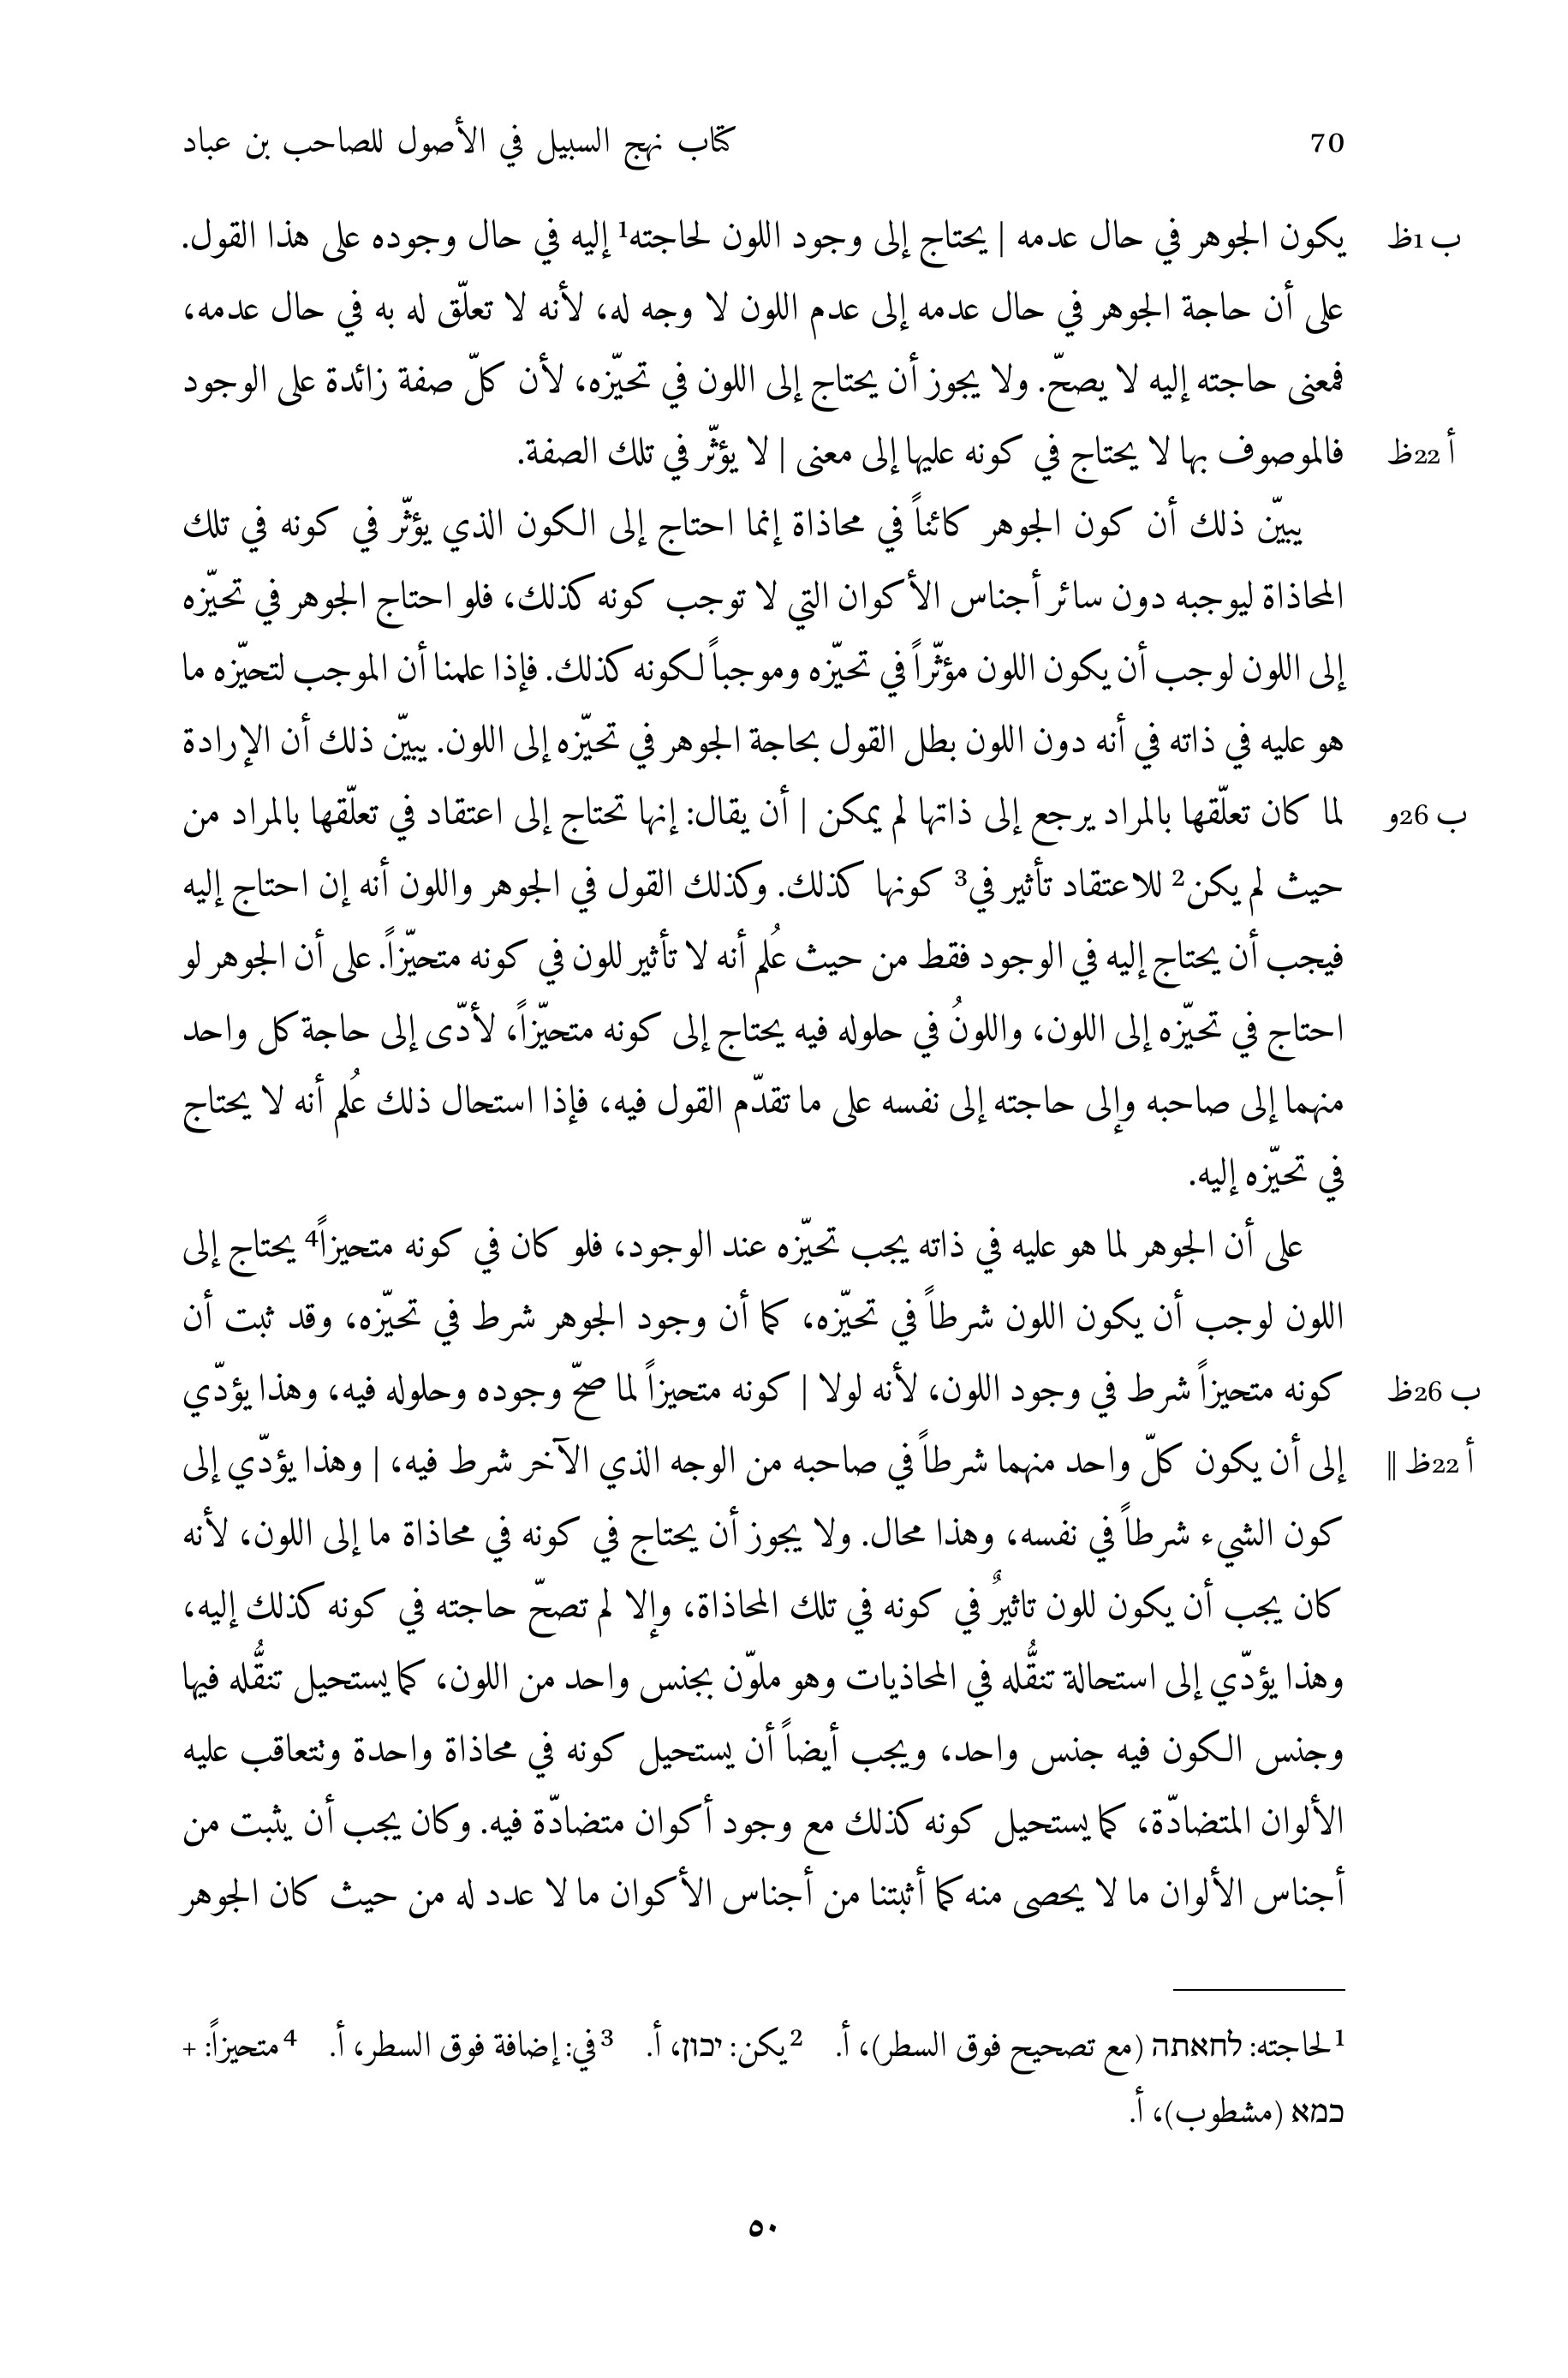 70 كتاب نهج السبيل في الأصول للصاحب بن عباد
ب 1ظ يكون الجوهر في حال عدمه | يحتاج إلى وجود اللون لحاجته1 إليه في حال وجوده على هذا القول.
على أن حاجة الجوهر في حال عدمه إلى عدم اللون لا وجه له، لأنه لا تعلّق له به في حال عدمه،
فمعنى حاجته إليه لا يصحّ. ولا يجوز أن يحتاج إلى اللون في تحيّزه، لأن كلّ صفة زائدة على الوجود
أ 22ظ فالموصوف بها لا يحتاج في كونه عليها إلى معنى | لا يؤثّر في تلك الصفة.
يبيّن ذلك أن كون الجوهر كائناً في محاذاة إنما احتاج إلى الكون الذي يؤثّر في كونه في تلك
المحاذاة ليوجبه دون سائر أجناس الأكوان التي لا توجب كونه كذلك، فلو احتاج الجوهر في تحيّزه
إلى اللون لوجب أن يكون اللون مؤثّراً في تحيّزه وموجباً لكونه كذلك. فإذا علمنا أن الموجب لتحيّزه ما
هو عليه في ذاته في أنه دون اللون بطل القول بحاجة الجوهر في تحيّزه إلى اللون. يبيّن ذلك أن الإرادة
ب 26و لما كان تعلّقها بالمراد يرجع إلى ذاتها لم يمكن | أن يقال: إنها تحتاج إلى اعتقاد في تعلّقها بالمراد من
حيث لم يكن2 للاعتقاد تأثير في3 كونها كذلك. وكذلك القول في الجوهر واللون أنه إن احتاج إليه
فيجب أن يحتاج إليه في الوجود فقط من حيث عُلم أنه لا تأثير للون في كونه متحيّزاً. على أن الجوهر لو
احتاج في تحيّزه إلى اللون، واللونُ في حلوله فيه يحتاج إلى كونه متحيّزاً، لأدّى إلى حاجة كل واحد
منهما إلى صاحبه وإلى حاجته إلى نفسه على ما تقدّم القول فيه، فإذا استحال ذلك عُلم أنه لا يحتاج
في تحيّزه إليه.
على أن الجوهر لما هو عليه في ذاته يجب تحيّزه عند الوجود، فلو كان في كونه متحيزاً4 يحتاج إلى
اللون لوجب أن يكون اللون شرطاً في تحيّزه، كما أن وجود الجوهر شرط في تحيّزه، وقد ثبت أن
ب 26ظ كونه متحيزاً شرط في وجود اللون، لأنه لولا | كونه متحيزاً لما صحّ وجوده وحلوله فيه، وهذا يؤدّي
أ 22ظ || إلى أن يكون كلّ واحد منهما شرطاً في صاحبه من الوجه الذي الآخر شرط فيه، | وهذا يؤدّي إلى
كون الشيء شرطاً في نفسه، وهذا محال. ولا يجوز أن يحتاج في كونه في محاذاة ما إلى اللون، لأنه
كان يجب أن يكون للون تاثيرٌ في كونه في تلك المحاذاة، وإلا لم تصحّ حاجته في كونه كذلك إليه،
وهذا يؤدّي إلى استحالة تنقُّله في المحاذيات وهو ملوّن بجنس واحد من اللون، كما يستحيل تنقُّله فيها
وجنس الكون فيه جنس واحد، ويجب أيضاً أن يستحيل كونه في محاذاة واحدة وتتعاقب عليه
الألوان المتضادّة، كما يستحيل كونه كذلك مع وجود أكوان متضادّة فيه. وكان يجب أن يثبت من
أجناس الألوان ما لا يحصى منه كما أثبتنا من أجناس الأكوان ما لا عدد له من حيث كان الجوهر
1 لحاجته: לחאתה (مع تصحيح فوق السطر)، أ. 2 يكن: יכון، أ. 3 في: إضافة فوق السطر، أ. 4 متحيزاً: +
כמא (مشطوب)، أ.
٥٠